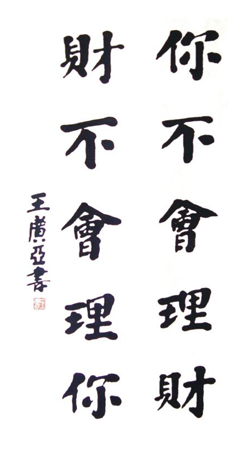 你不會理財
財不會理你
王廣亞書